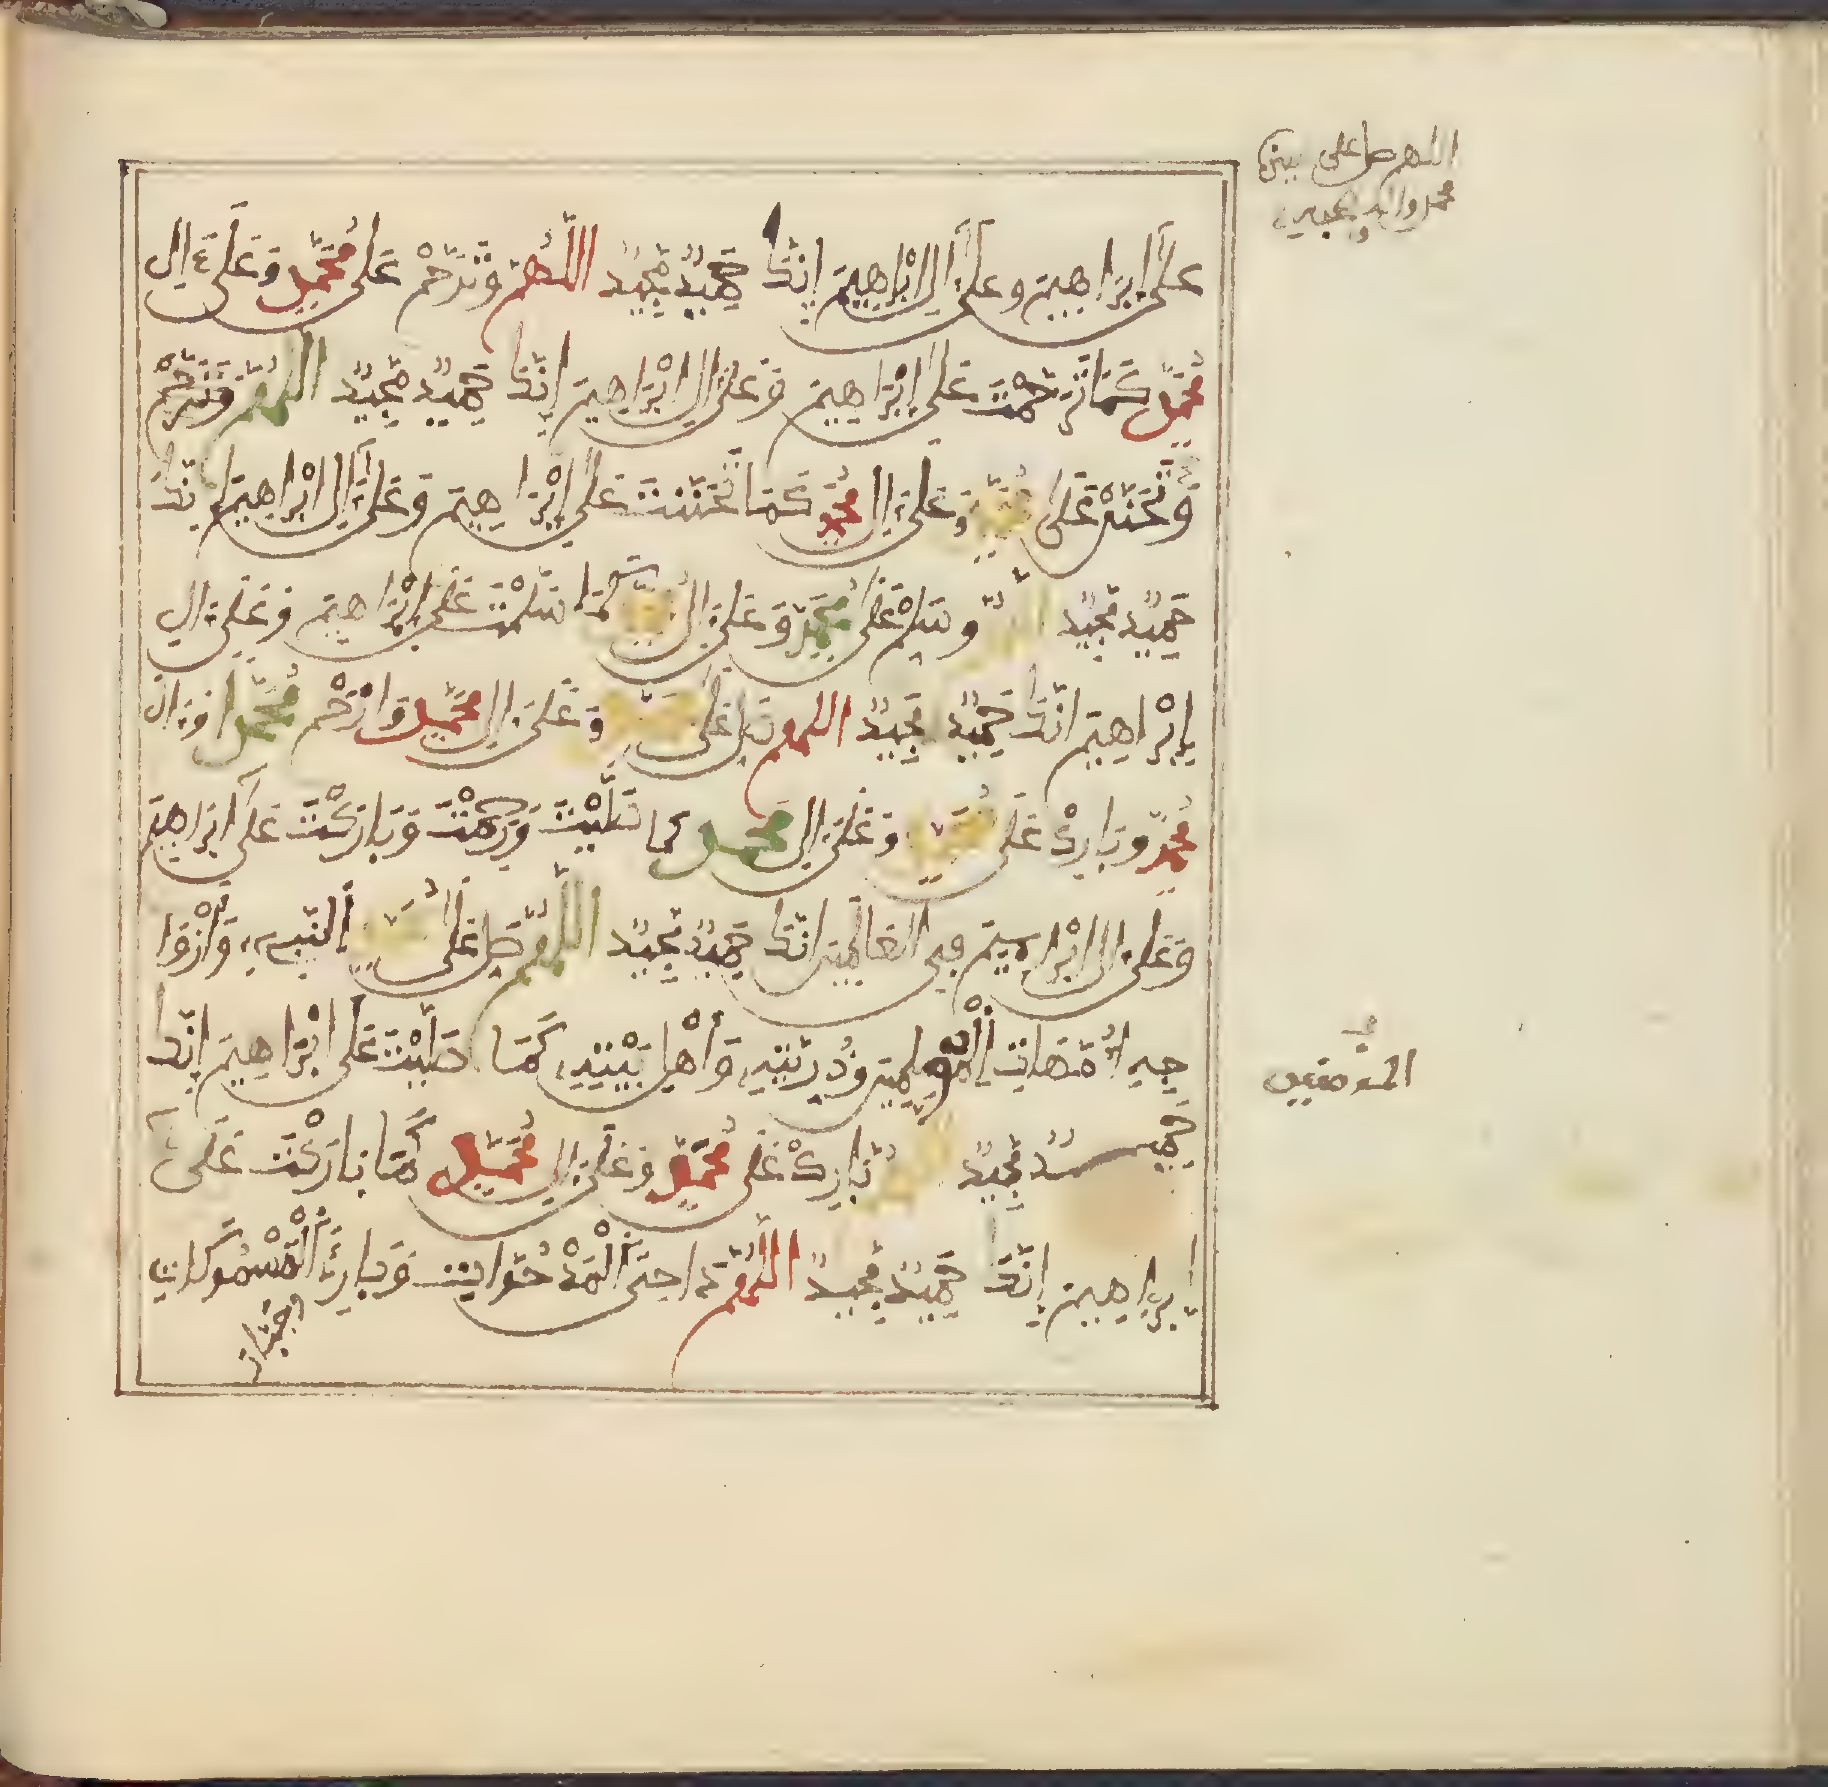 اللهم صل على نبينا
محمد واله وصحبه
عَلَى إِبْرَاهِيمَ وعلى ءال إِبْرَاهِيمَ إِنَّكَ حَمِيدٌ مَجِيدٌ اللَّهُمَّ وَتَرَحَّمْ عَلَى مُحَمَّدٍ وَعَلَى ءَالِ
مُحَمَّدٍ كَمَا تَرَحَّمْتَ عَلَى إِبْرَاهِيمَ وَعَلَى ءالِ إِبْرَاهِيمَ إِنَّكَ حَمِيدٌ مَجِيدٌ اللهم
وَتَحَنَّنْ عَلَى مُحَمَّدٍ وَعَلَى ءالِ مُحَمَّدٍ كَمَا تَحَنَّنْتَ عَلَى إِبْرَاهِيمَ وَعَلَى ءالِ إِبْرَاهِيمَ إِنَّكَ
حَمِيدٌ مَجِيدٌ اللهم وَسَلِّمْ عَلَى مُحَمَّدٍ وَعَلَى ءالِ مُحَمَّدٍ كَمَا سَلَّمْتَ عَلَى إِبْرَاهِيمَ وَعَلَى ءالِ
إِبْرَاهِيمَ إِنَّكَ حَمِيدٌ مَجِيدٌ اللهم صَلِّ عَلَى مُحَمَّدٍ وَعَلَى ءالِ مُحَمَّدٍ وَارْحَمْ مُحَمَّدًا وَءالَ
مُحَمَّدٍ وَبَارِكْ عَلَى مُحَمَّدٍ وَعَلَى ءالِ مُحَمَّدٍ كما صَلَّيْتَ وَرَحِمْتَ وَبَارَكْتَ عَلَى إِبْرَاهِيمَ
وَعَلَى ءالِ إِبْرَاهِيمَ فِي الْعَالَمِينَ إِنَّكَ حَمِيدٌ مَجِيدٌ اللَّهُمَّ صَلِّ عَلَى مُحَمَّدٍ النَّبِيءِ وَأَزْوَا
جِهِ أُمَّهَاتِ وَذُرِّيَّتِهِ وَأَهْلِ بَيْتِهِ كَمَا صَلَّيْتَ عَلَى إِبْرَاهِيمَ إِنَّكَ
المومنين
حَمِيدٌ مَجِيدٌ اللهم بَارِكْ عَلَى مُحَمَّدٍ وَعَلَى ءالِ مُحَمَّدٍ كَمَا بَارَكْتَ عَلَى
إِبْرَاهِيمَ إِنَّكَ حَمِيدٌ مَجِيدٌ اللَّهُمَّ دَاحِيَ الْمَدْحُوَّاتِ وَبَارِئَ الْمَسْمُوكَاتِ
وجبار